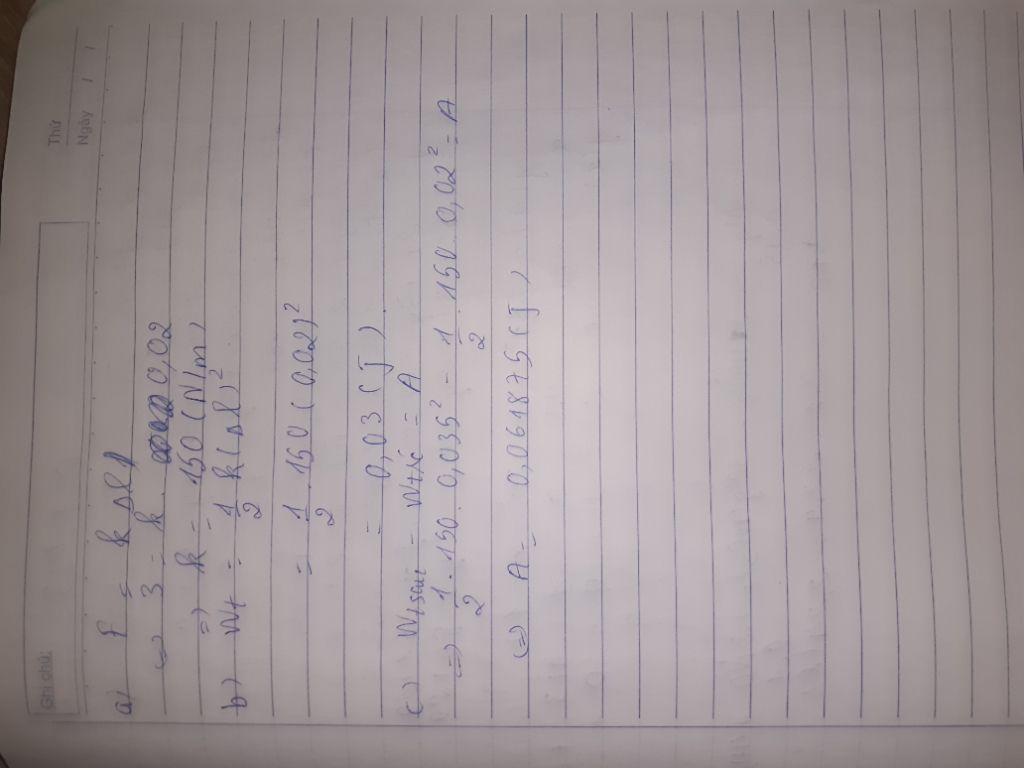 Ghi chú:
Thứ
Ngày / /
a) F = k|Δl|
<=> 3 = k. 0,02
=> k = 150 (N/m)
b) Wt = 1/2 k(Δl)²
= 1/2 . 150 (0,02)²
= 0,03 (J)
c) Wtsau - Wtđ = A
<=> 1/2 . 150 . 0,035² - 1/2 . 150 . 0,02² = A
<=> A = 0,061875 (J)